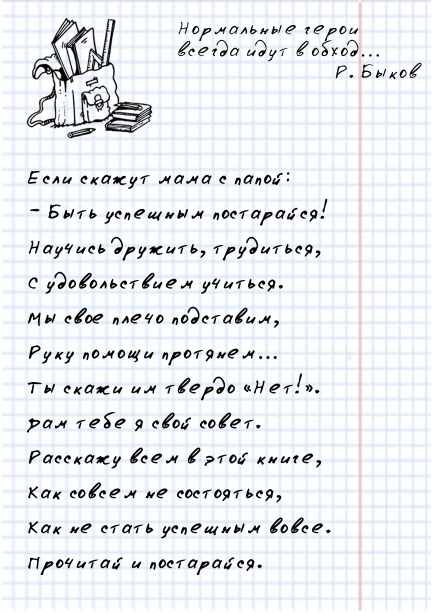 Нормальные герои
всегда идут в обход...
Р. Быков
Если скажут мама с папой:
- Быть успешным постарайся!
Научись дружить, трудиться,
С удовольствием учиться.
Мы свое плечо подставим,
Руку помощи протянем...
Ты скажи им твердо «Нет!».
Дам тебе я свой совет.
Расскажу всем в этой книге,
Как совсем не состояться,
Как не стать успешным вовсе.
Прочитай и постарайся.